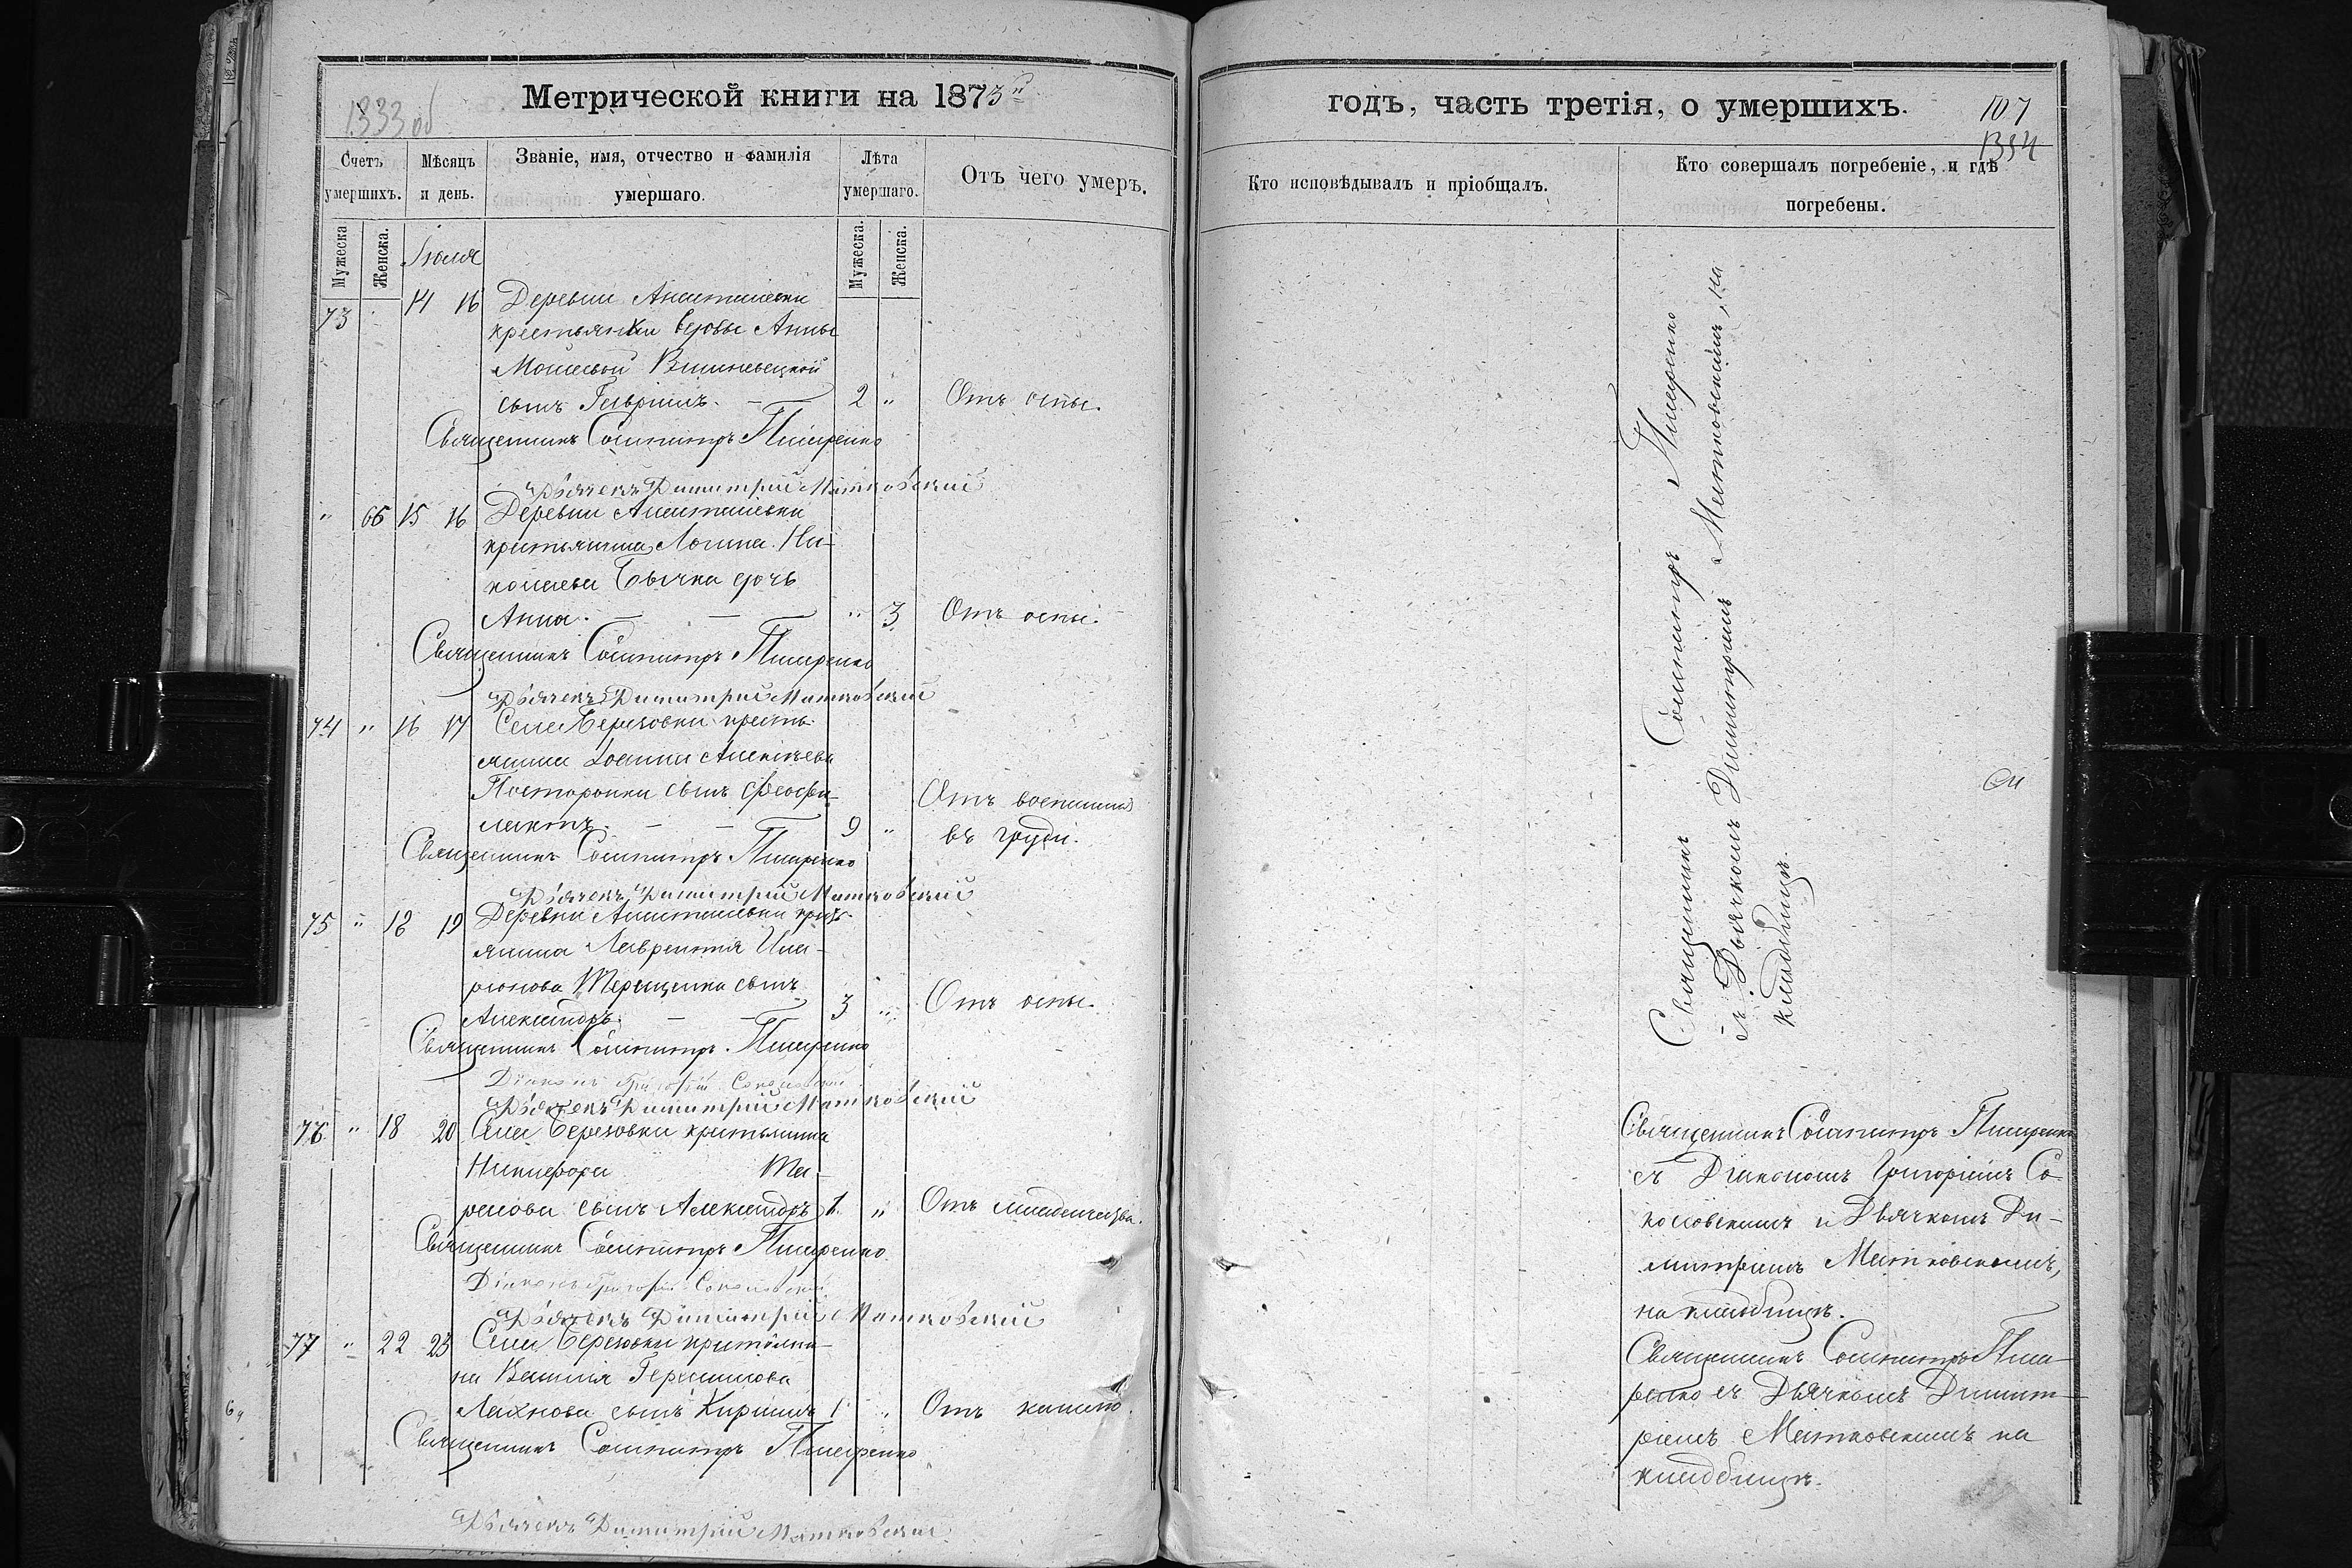 1333 об
Метрической книги на 1873й
Счетъ умершихъ.
Мѣсяцъ и день.
Званіе, имя, отчество и фамилія умершаго.
Лѣта умершаго.
Отъ чего умеръ.
Мужеска
Женска.
Мужеска.
Женска.
Іюля
73 14 16 Деревни Анатолиевки
крестьянки вдовы Анны
Моисеевой Вишневецкой
сынъ Гавріилъ. — 2 " Отъ оспы.
Священникъ Сосипатръ Писаренко
Дьячекъ Димитрій Матковскій
" 66 15 16 Деревни Анатолиевки
крестьянина Логина Ни-
колаева Бычка дочь
Анна. — — " 3 Отъ оспы.
Священникъ Сосипатръ Писаренко
Дьячекъ Димитрій Матковскій
74 " 16 17 Села Березовки кресть-
янина Іоанна Алексѣева
Посторонки сынъ Феофи-
лактъ. — — 9 " Отъ воспаленія
въ груди.
Священникъ Сосипатръ Писаренко
Дьячекъ Димитрій Матковскій
75 " 18 19 Деревни Анатолиевки кресть-
янина Лаврентія Ила-
ріонова Терещенка сынъ
Александръ. — — 3 " Отъ оспы.
Священникъ Сосипатръ Писаренко
Діаконъ Григорій Соколовскій
Дьячекъ Димитрій Матковскій
76 " 18 20 Села Березовки крестьянина
Никифора
сынъ Александръ 1 " Отъ младенчества.
Священникъ Сосипатръ Писаренко
Діаконъ Григорій Соколовскій
Дьячекъ Димитрій Матковскій
77 " 22 23 Села Березовки крестьяни-
на Василія Герасимова
Лахнова сынъ Кириллъ 1 " Отъ кашлю.
Священникъ Сосипатръ Писаренко
Дьячекъ Димитрій Матковскій
годъ, часть третія, о умершихъ.
107
1334
Кто исповѣдывалъ и пріобщалъ.
Кто совершалъ погребеніе, и гдѣ погребены.
Священникъ Сосипатръ Писаренко
съ Дьячкомъ Димитріемъ Матковскимъ, на
кладбищѣ.
Священникъ Сосипатръ Писаренко
съ Діакономъ Григоріемъ Со-
коловскимъ и Дьячкомъ Ди-
митріемъ Матковскимъ,
на кладбищѣ.
Священникъ Сосипатръ Писа-
ренко съ Дьячкомъ Димит-
ріемъ Матковскимъ на
кладбищѣ.